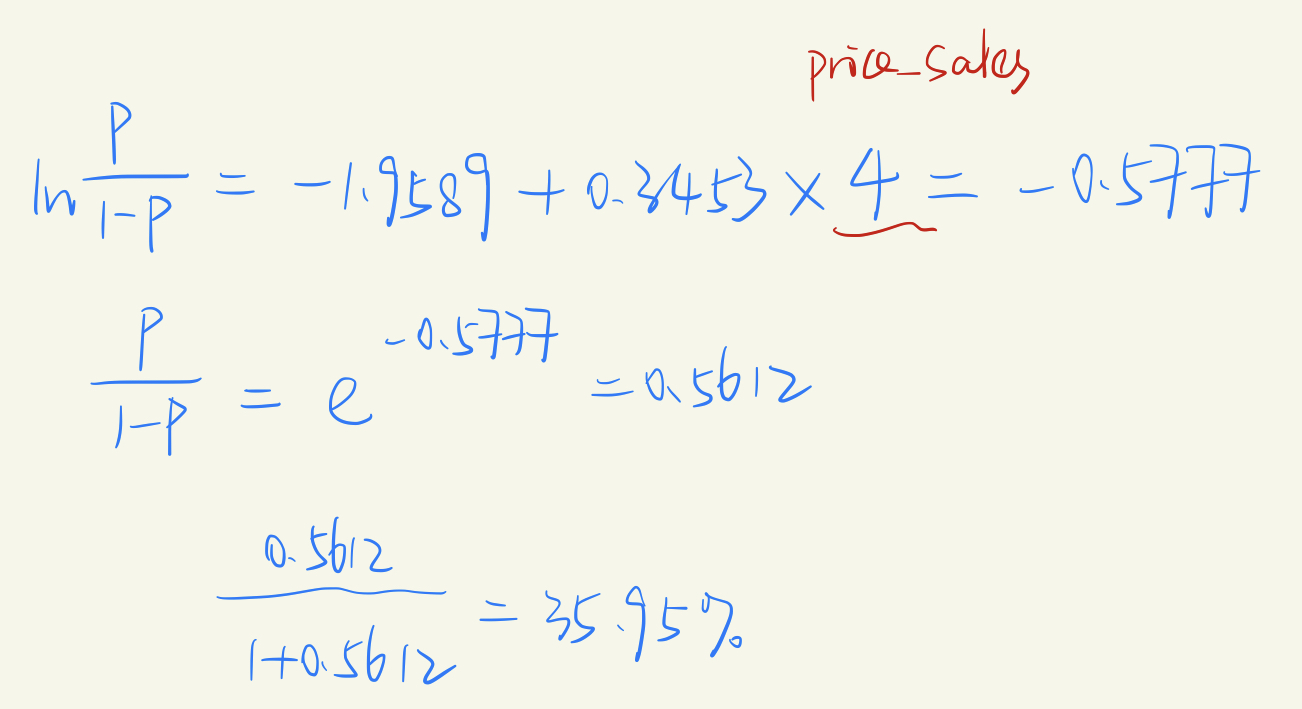 price_sales
ln P/(1-P) = -1.9589 + 0.3453 × 4 = -0.5777
P/(1-P) = e^(-0.5777) = 0.5612
0.5612/(1+0.5612) = 35.95%